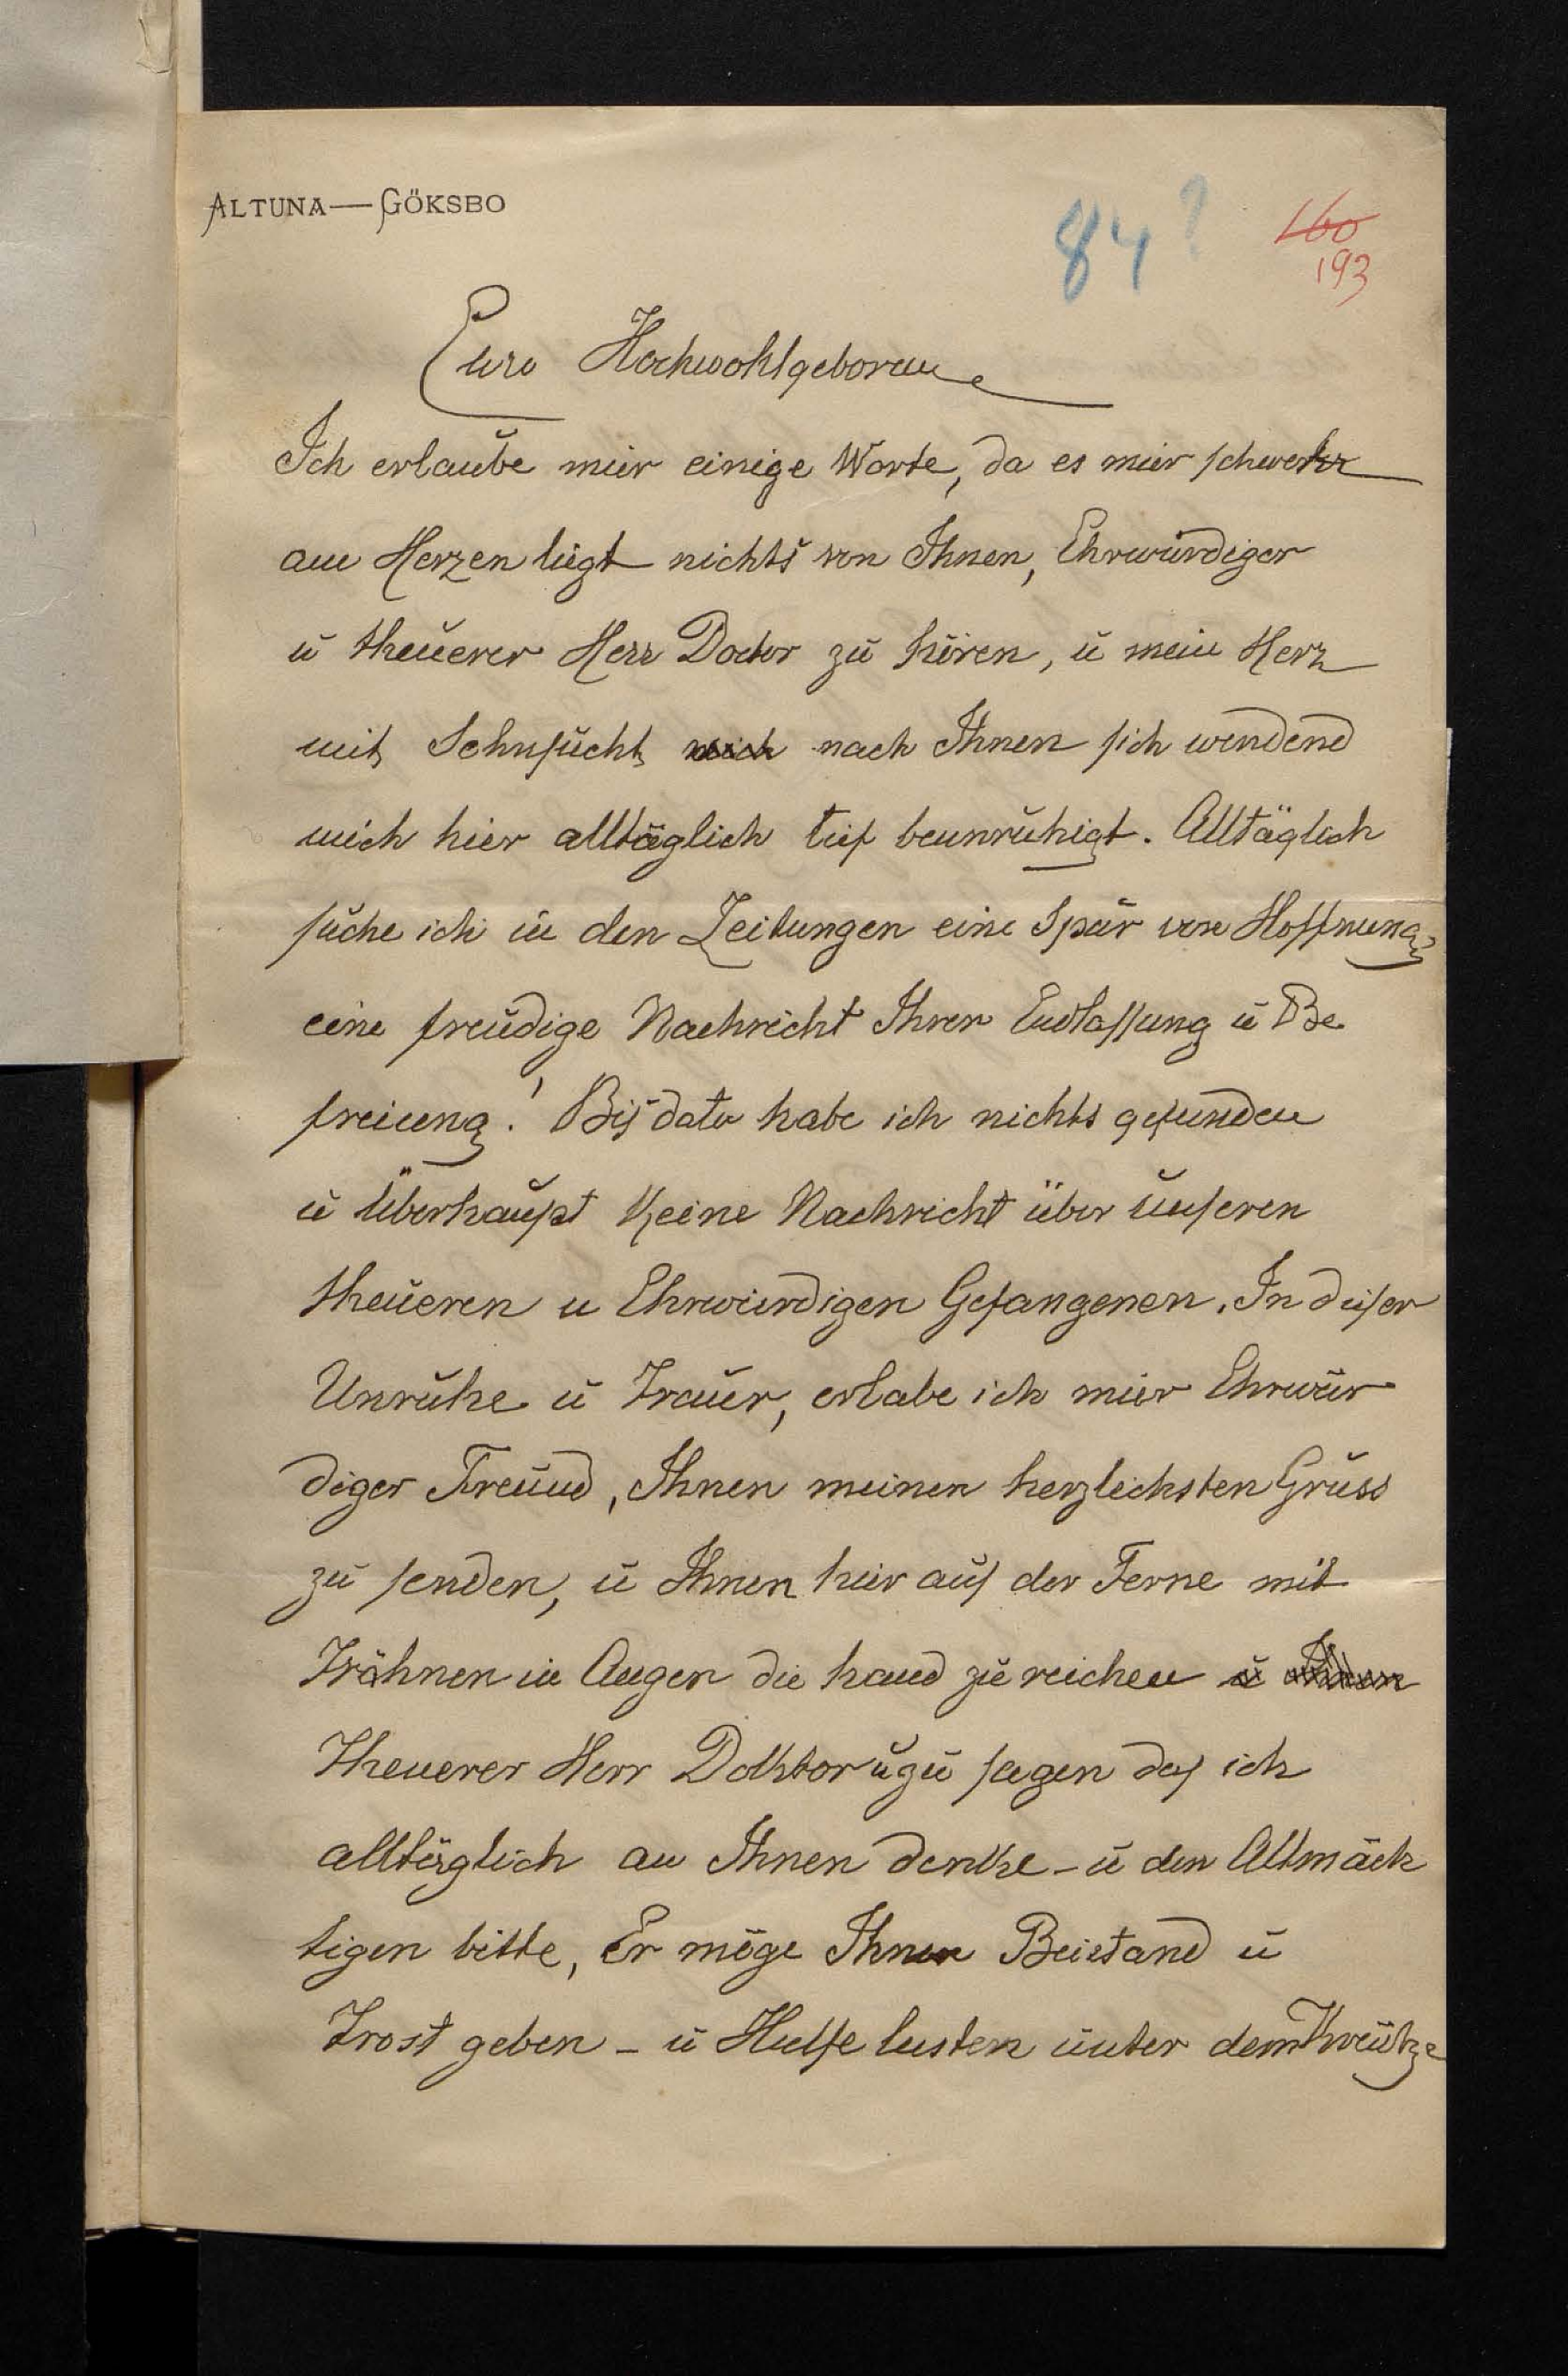 ALTUNA—GÖKSBO
84?
160
193
Euro Hochwohlgeboren
Ich erlaube mier einige Worte, da es mier schwehr
am Herzen liegt nichts von Ihnen, Ehrwürdiger
ŭ theŭerer Herr Doctor zŭ hören, ŭ mein Herz
mit Sehnsŭcht nach Ihnen sich wendend
mich hier alltäglich tief beunrŭhigt. Alltäglich
sŭche ich in den Zeitungen eine Spŭr von Hoffnung
eine freŭdige Nachricht Ihrer Entlassung ŭ Be
freiung! Bis dato habe ich nichts gefunden
ŭ Überhaŭpt Keine Nachricht über ŭnseren
theŭeren u Ehrwürdigen Gefangenen. In dieser
Unrŭhe ŭ Traŭer, erlabe ich mier Ehrwür
diger Freŭnd, Ihnen meinen herzlichsten Grŭss
zŭ senden, ŭ Ihnen hier aŭs der Ferne mit
Trähnen in Augen die hand zŭ reichen
Theuerer Herr Doktor ŭ zŭ sagen das ich
alltäglich an Ihnen denke - ŭ den Allmäch
tigen bitte, Er möge Ihnen Beistand ŭ
Trost geben - ŭ Hulfe leisten ŭnter dem Kreŭtze